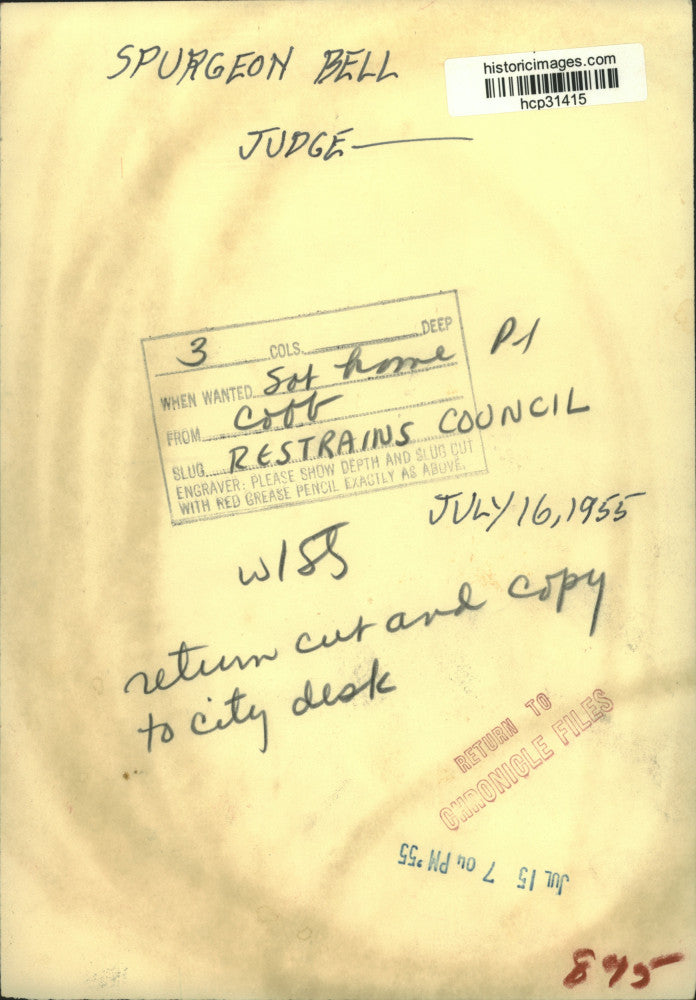 SPURGEON BELL
historicimages.com
hcp31415
JUDGE
3 COLS. DEEP
P1
WHEN WANTED Sat home
FROM Cobb
SLUG RESTRAINS COUNCIL
ENGRAVER: PLEASE SHOW DEPTH AND SLUG CUT
WITH RED GREASE PENCIL EXACTLY AS ABOVE.
JULY 16, 1955
return cut and copy
to city desk
RETURN TO
CHRONICLE FILES
JUL 15 7 04 PM '55